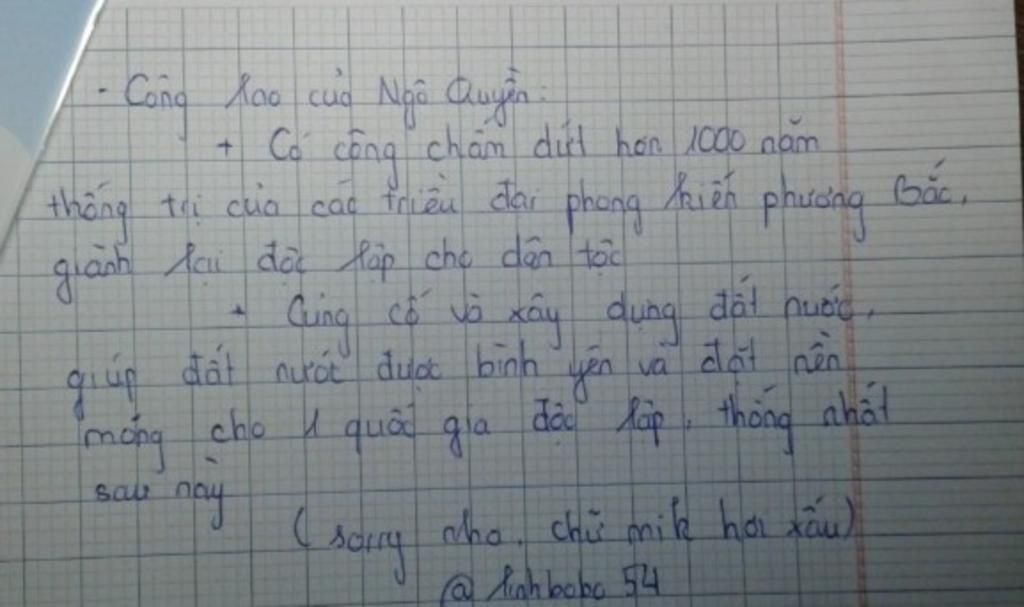 - Công lao của Ngô Quyền:
+ Có công chấm dứt hơn 1000 năm
thống trị của các triều đại phong kiến phương Bắc,
giành lại độc lập cho dân tộc
+ Củng cố và xây dựng đất nước,
giúp đất nước được bình yên và đặt nền
móng cho 1 quốc gia độc lập, thống nhất
sau này
(sorry nha, chữ mik hơi xấu)
@ linhbobo 54